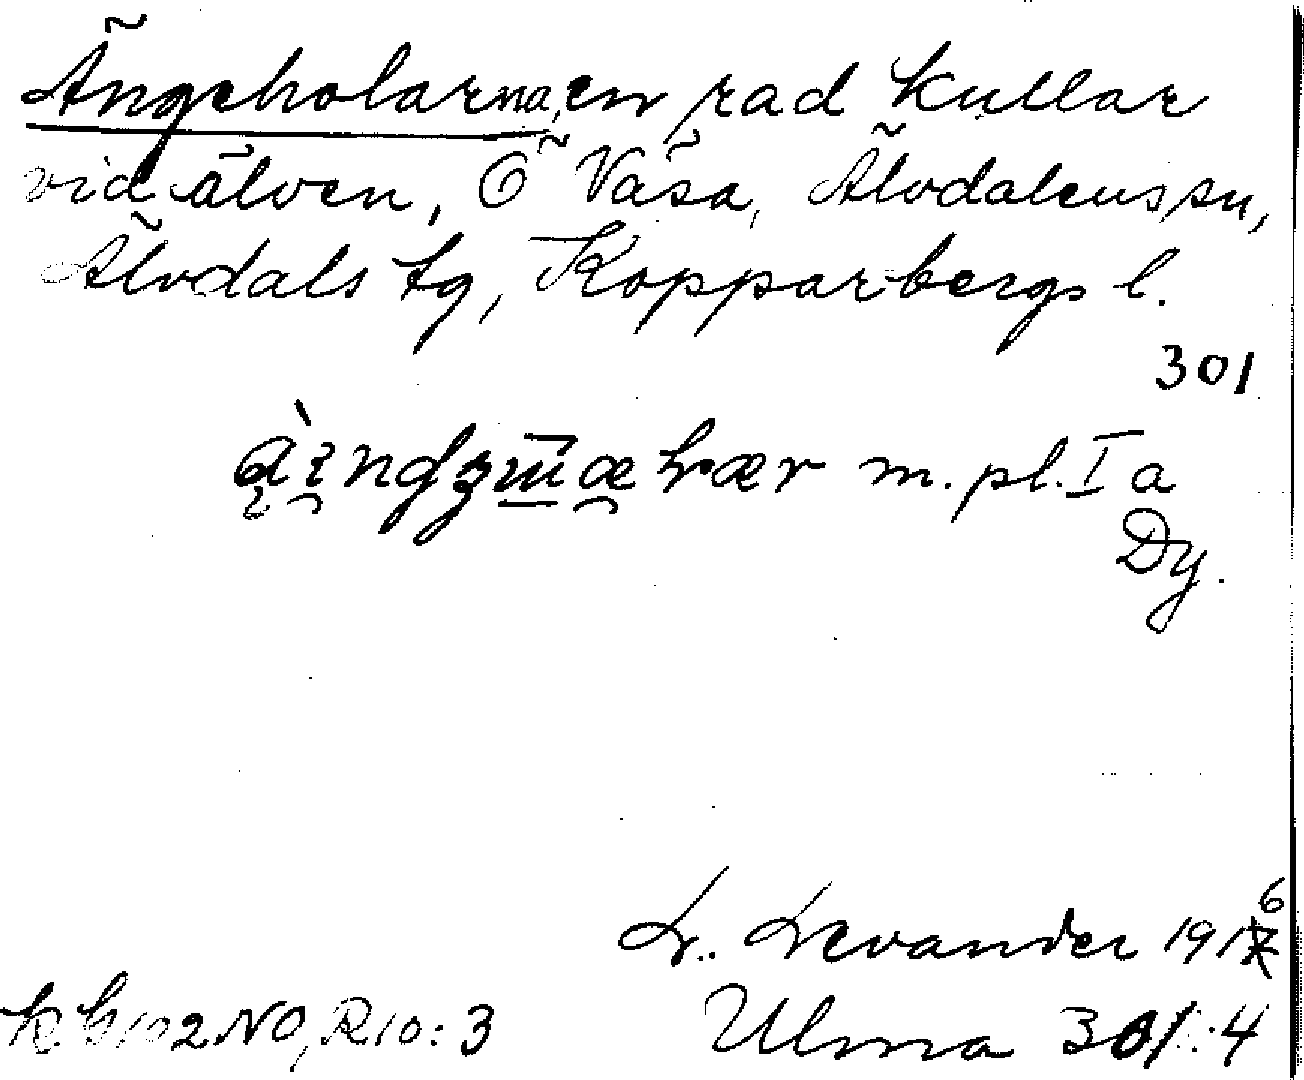 Ängeholarna, en rad kullar
vid älven, Ö Väsa, Älvdalens sn,
Älvdals tg, Kopparbergs l.
301
m. pl. I a
Dy.
L. Levander 1916
Kb 102 NO, R 10:3
Ulma 301:4